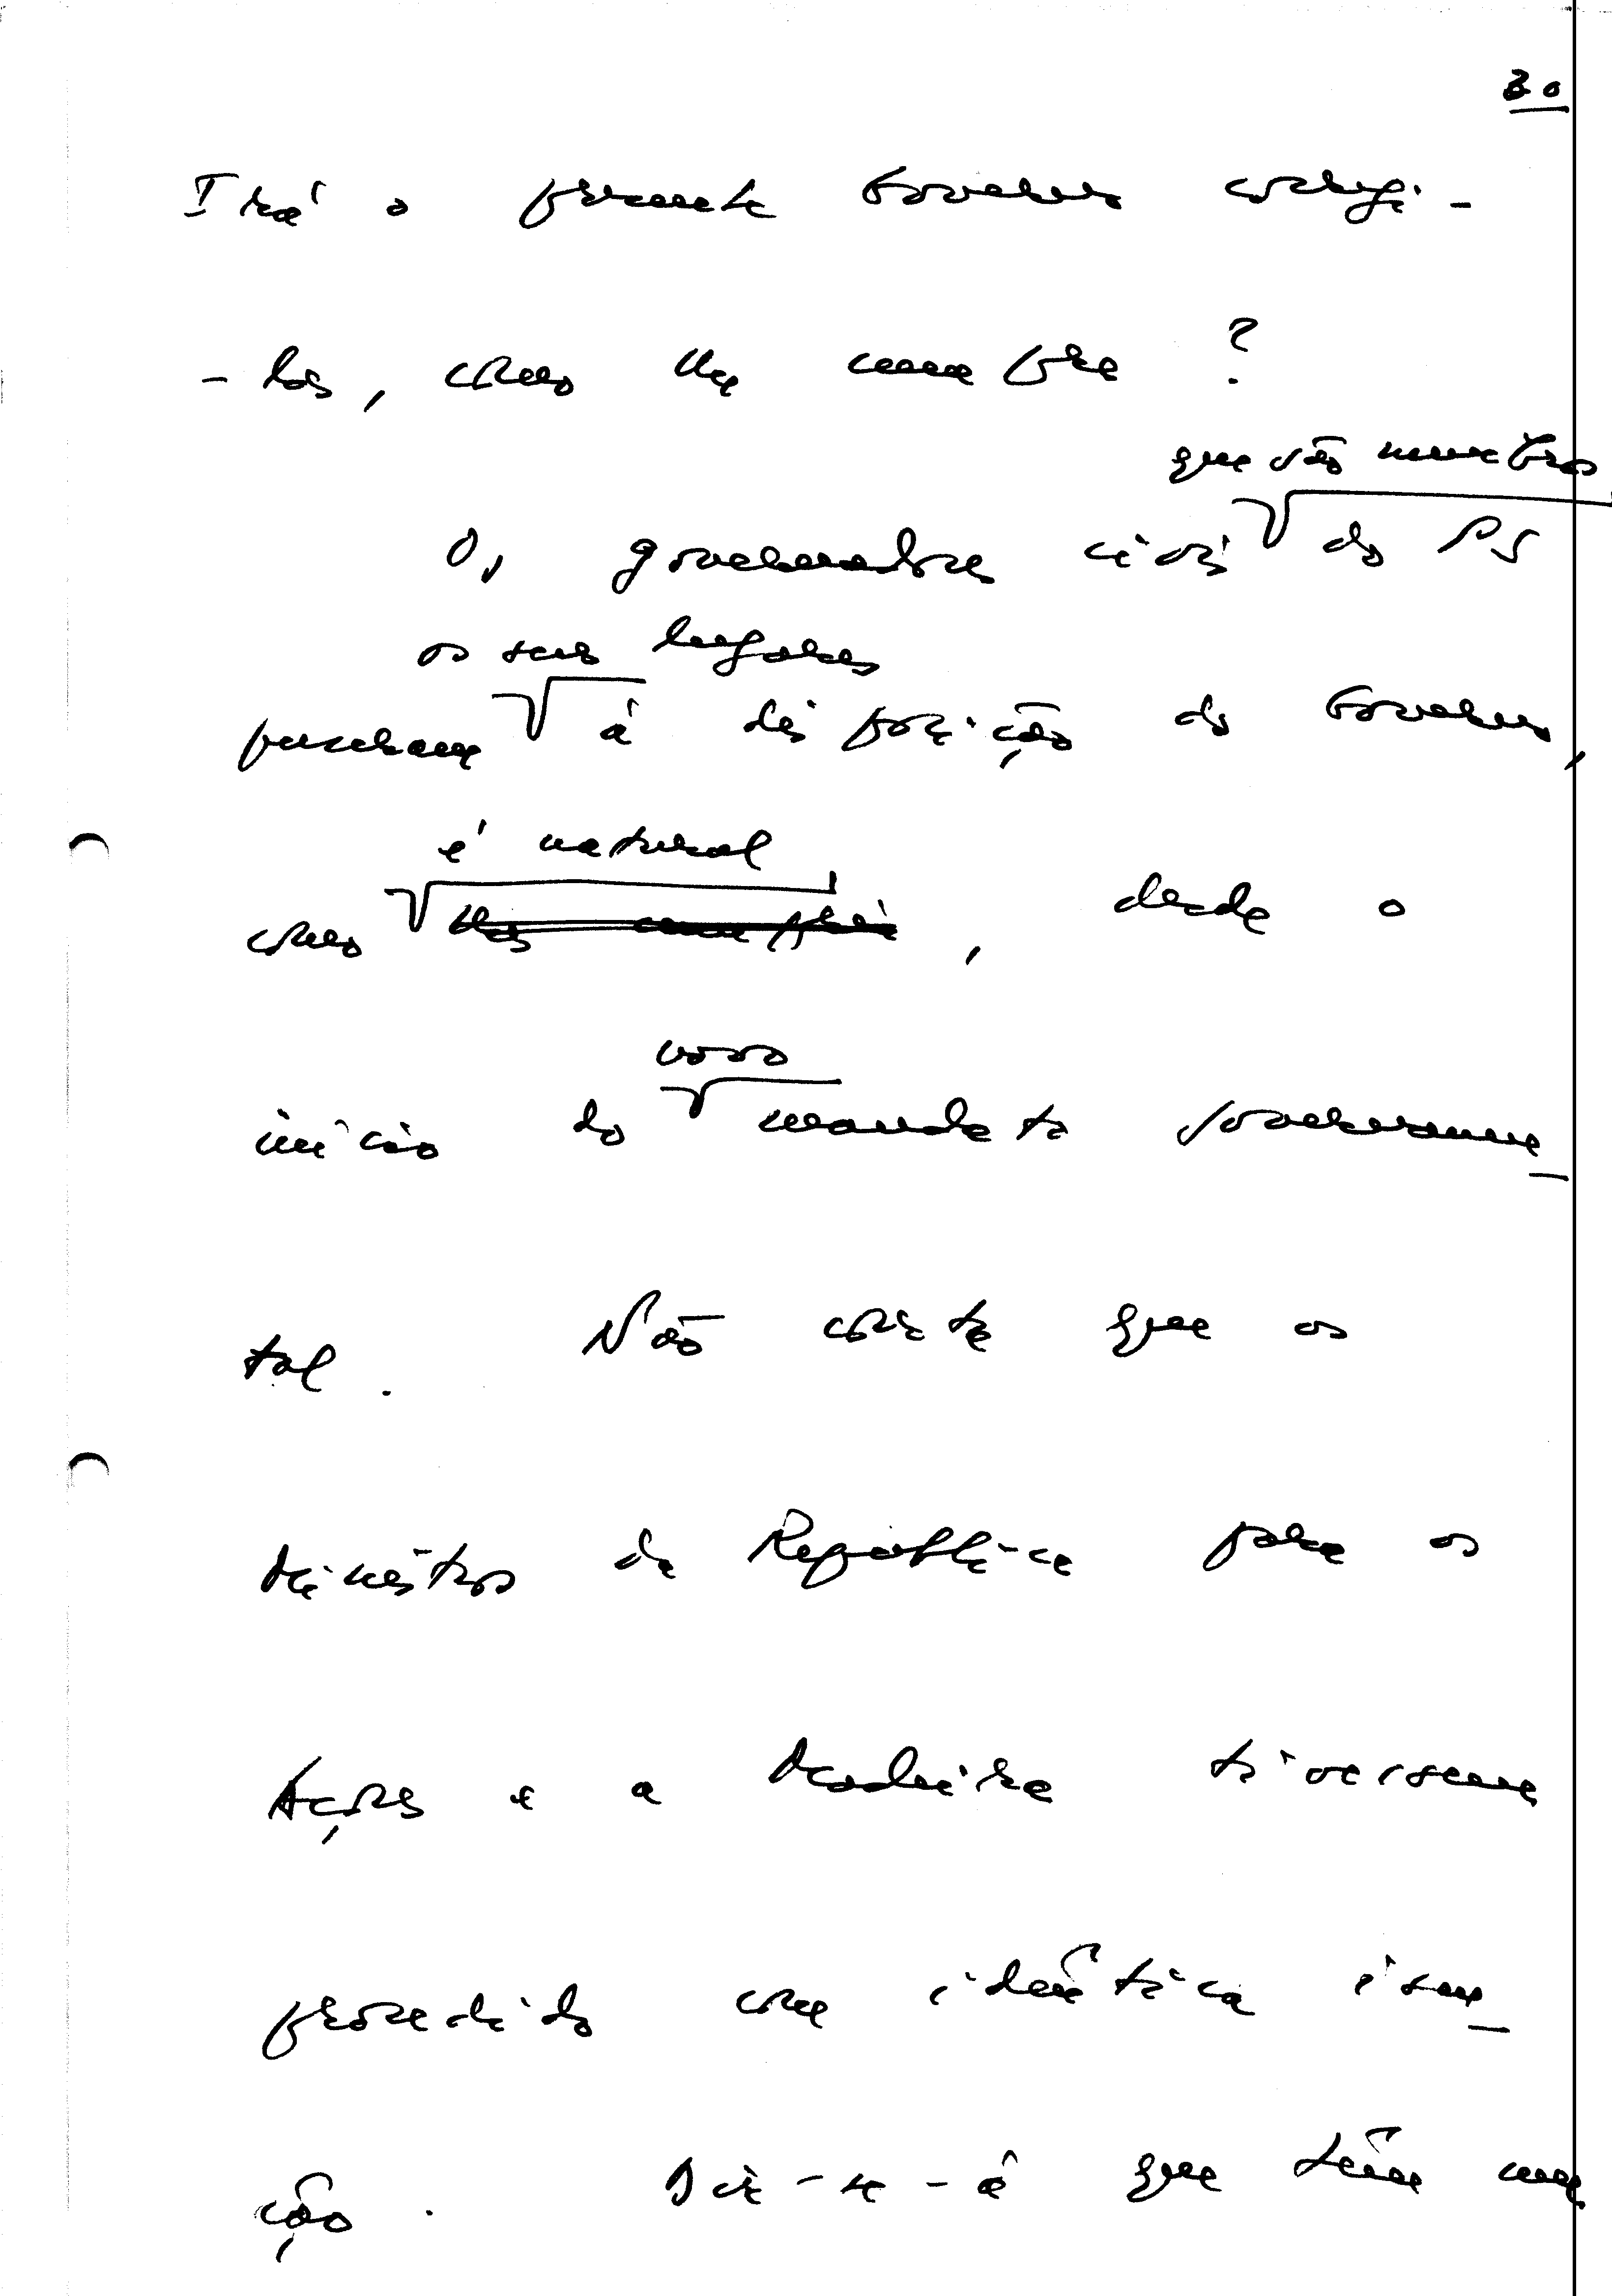 30
Irá o presente Governo corrigi-
-los, como lhe cumpre?
que são membros
Os governadores civis do PS
os seus lugares
puseram à disposição do Governo,
é natural
como lhes, desde o
novo
início do mandato governamen-
tal. Não consta que os
Ministros da República para os
Açores e a Madeira tivessem
procedido com idêntica isen-
ção. Dir-se-á que têm um